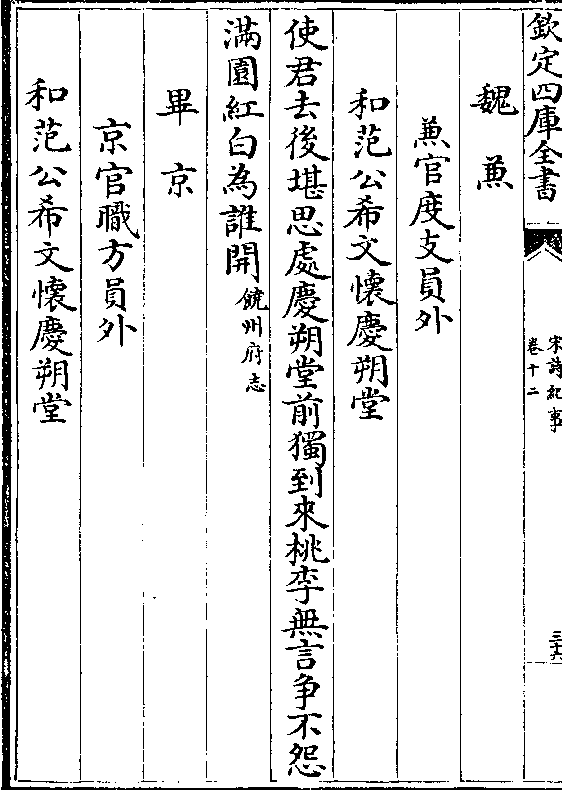 欽定四庫全書
宋詩紀事
卷十二
三十六
魏兼
兼官度支員外
和范公希文懷慶朔堂
使君去後堪思處慶朔堂前獨到來桃李無言争不怨
滿園紅白為誰開饒州府志
畢京
京官職方員外
和范公希文懷慶朔堂